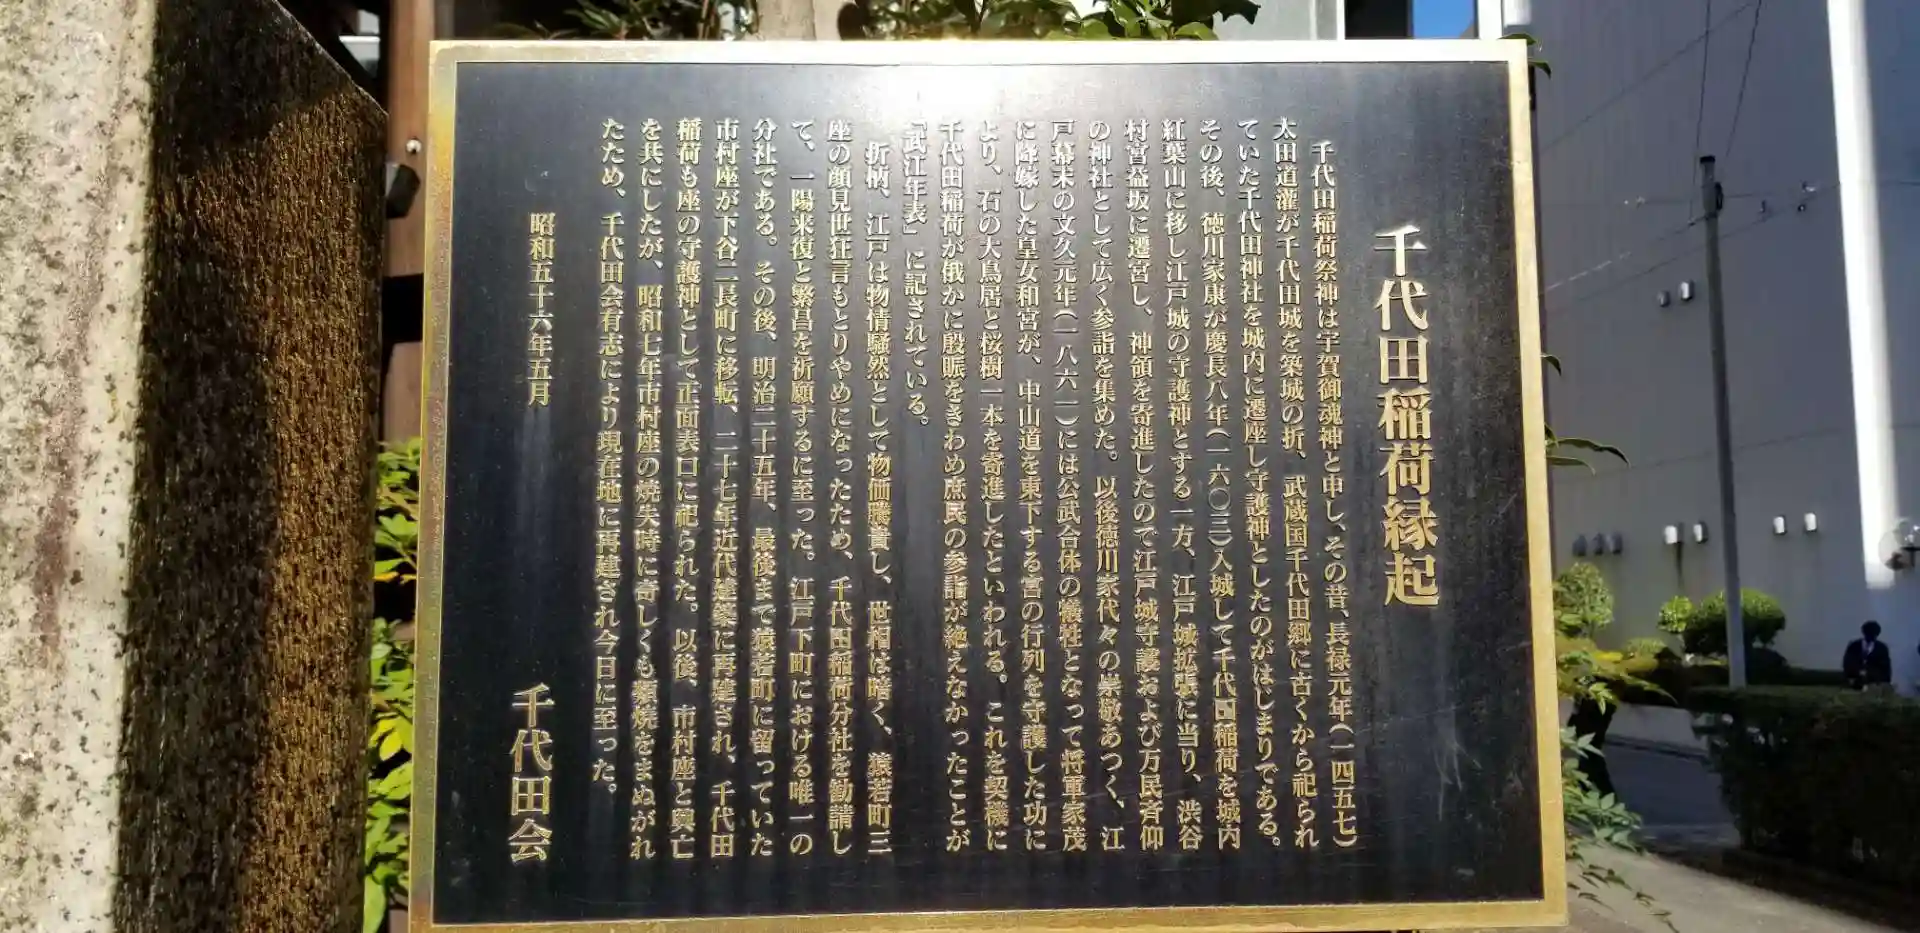 千代田稲荷縁起
千代田稲荷祭神は宇賀御魂神と申し、その昔、長禄元年(一四五七)
太田道灌が千代田城を築城の折、武蔵国千代田郷に古くから祀られ
ていた千代田神社を城内に遷座し守護神としたのがはじまりである。
その後、徳川家康が慶長八年(一六〇三)入城して千代田稲荷を城内
紅葉山に移し江戸城の守護神とする一方、江戸城拡張に当り、渋谷
村宮益坂に遷宮し、神領を寄進したので江戸城守護および万民斉仰
の神社として広く参詣を集めた。以後徳川家代々の崇敬あつく、江
戸幕末の文久元年(一八六一)には公武合体の犠牲となって将軍家茂
に降嫁した皇女和宮が、中山道を東下する宮の行列を守護した功に
より、石の大鳥居と桜樹一本を寄進したといわれる。これを契機に
千代田稲荷が俄かに殷賑をきわめ庶民の参詣が絶えなかったことが
「武江年表」に記されている。
折柄、江戸は物情騒然として物価騰貴し、世相は暗く、猿若町三
座の顔見世狂言もとりやめになったため、千代田稲荷分社を勧請し
て、一陽来復と繁昌を祈願するに至った。江戸下町における唯一の
分社である。その後、明治二十五年、最後まで猿若町に留っていた
市村座が下谷二長町に移転、二十七年近代建築に再建され、千代田
稲荷も座の守護神として正面表口に祀られた。以後、市村座と興亡
を共にしたが、昭和七年市村座の焼失時に奇しくも類焼をまぬがれ
たため、千代田会有志により現在地に再建され今日に至った。
昭和五十六年五月
千代田会